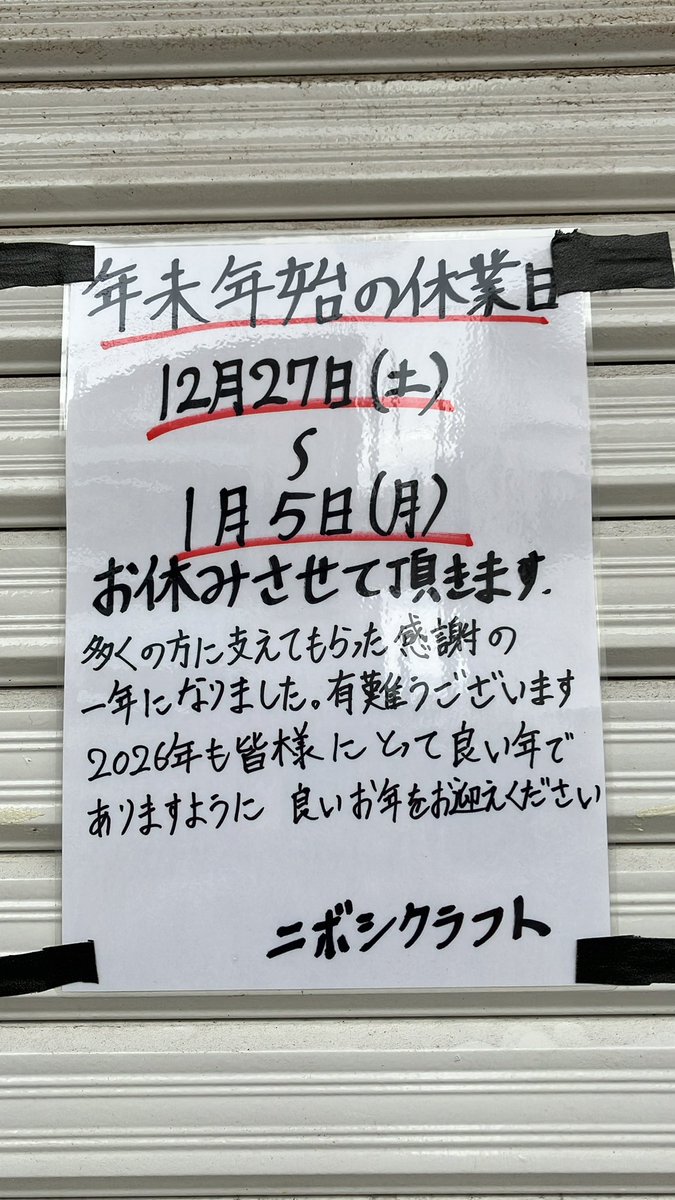 年末年始の休業日
12月27日(土)
〜
1月5日(月)
お休みさせて頂きます.
多くの方に支えてもらった感謝の
一年になりました。有難うございます
2026年も皆様にとって良い年で
ありますように 良いお年をお迎えください
ニボシクラフト